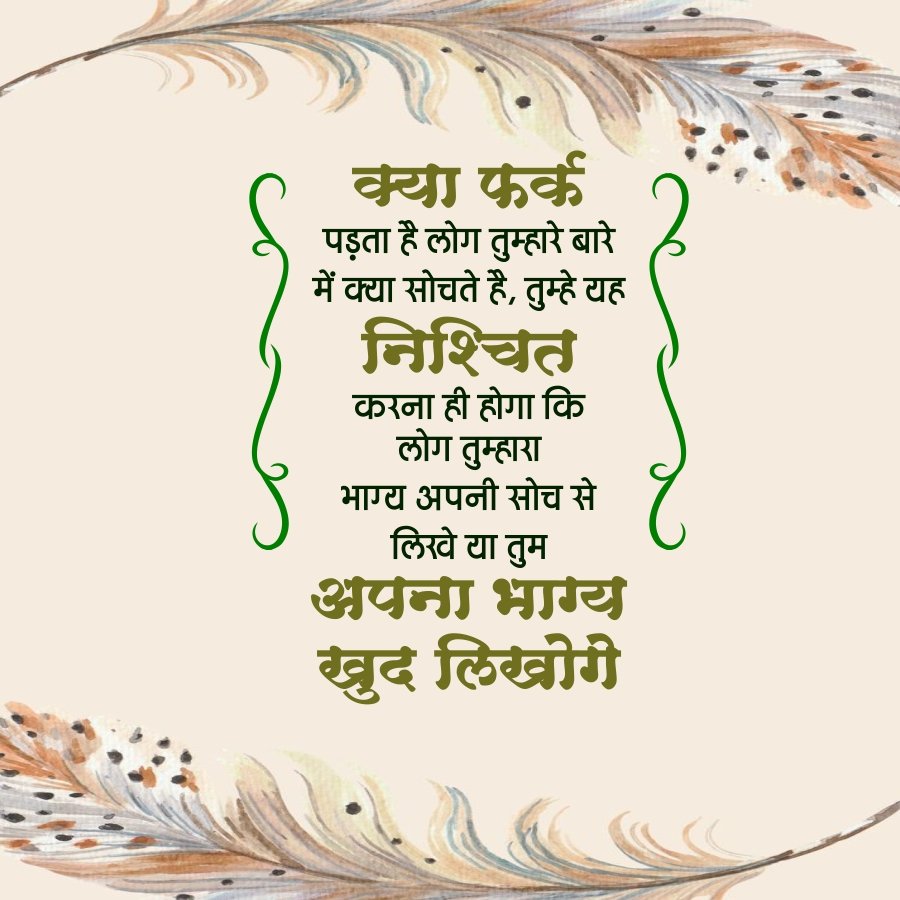 क्या फर्क
पड़ता है लोग तुम्हारे बारे
में क्या सोचते है, तुम्हे यह
निश्चित
करना ही होगा कि
लोग तुम्हारा
भाग्य अपनी सोच से
लिखे या तुम
अपना भाग्य
खुद लिखोगे